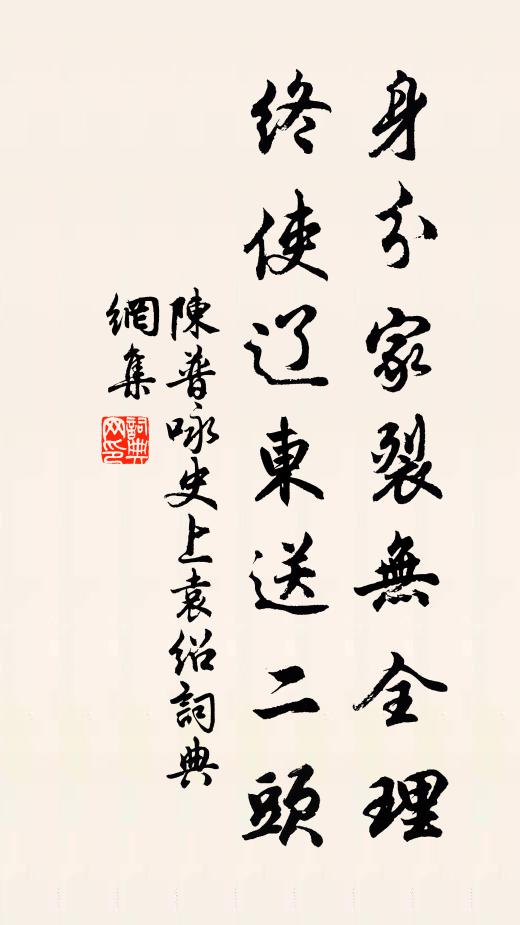 身分家裂無全理
終使辽東送二頭
陳普咏史上袁绍詞典
網集
詞典
网印